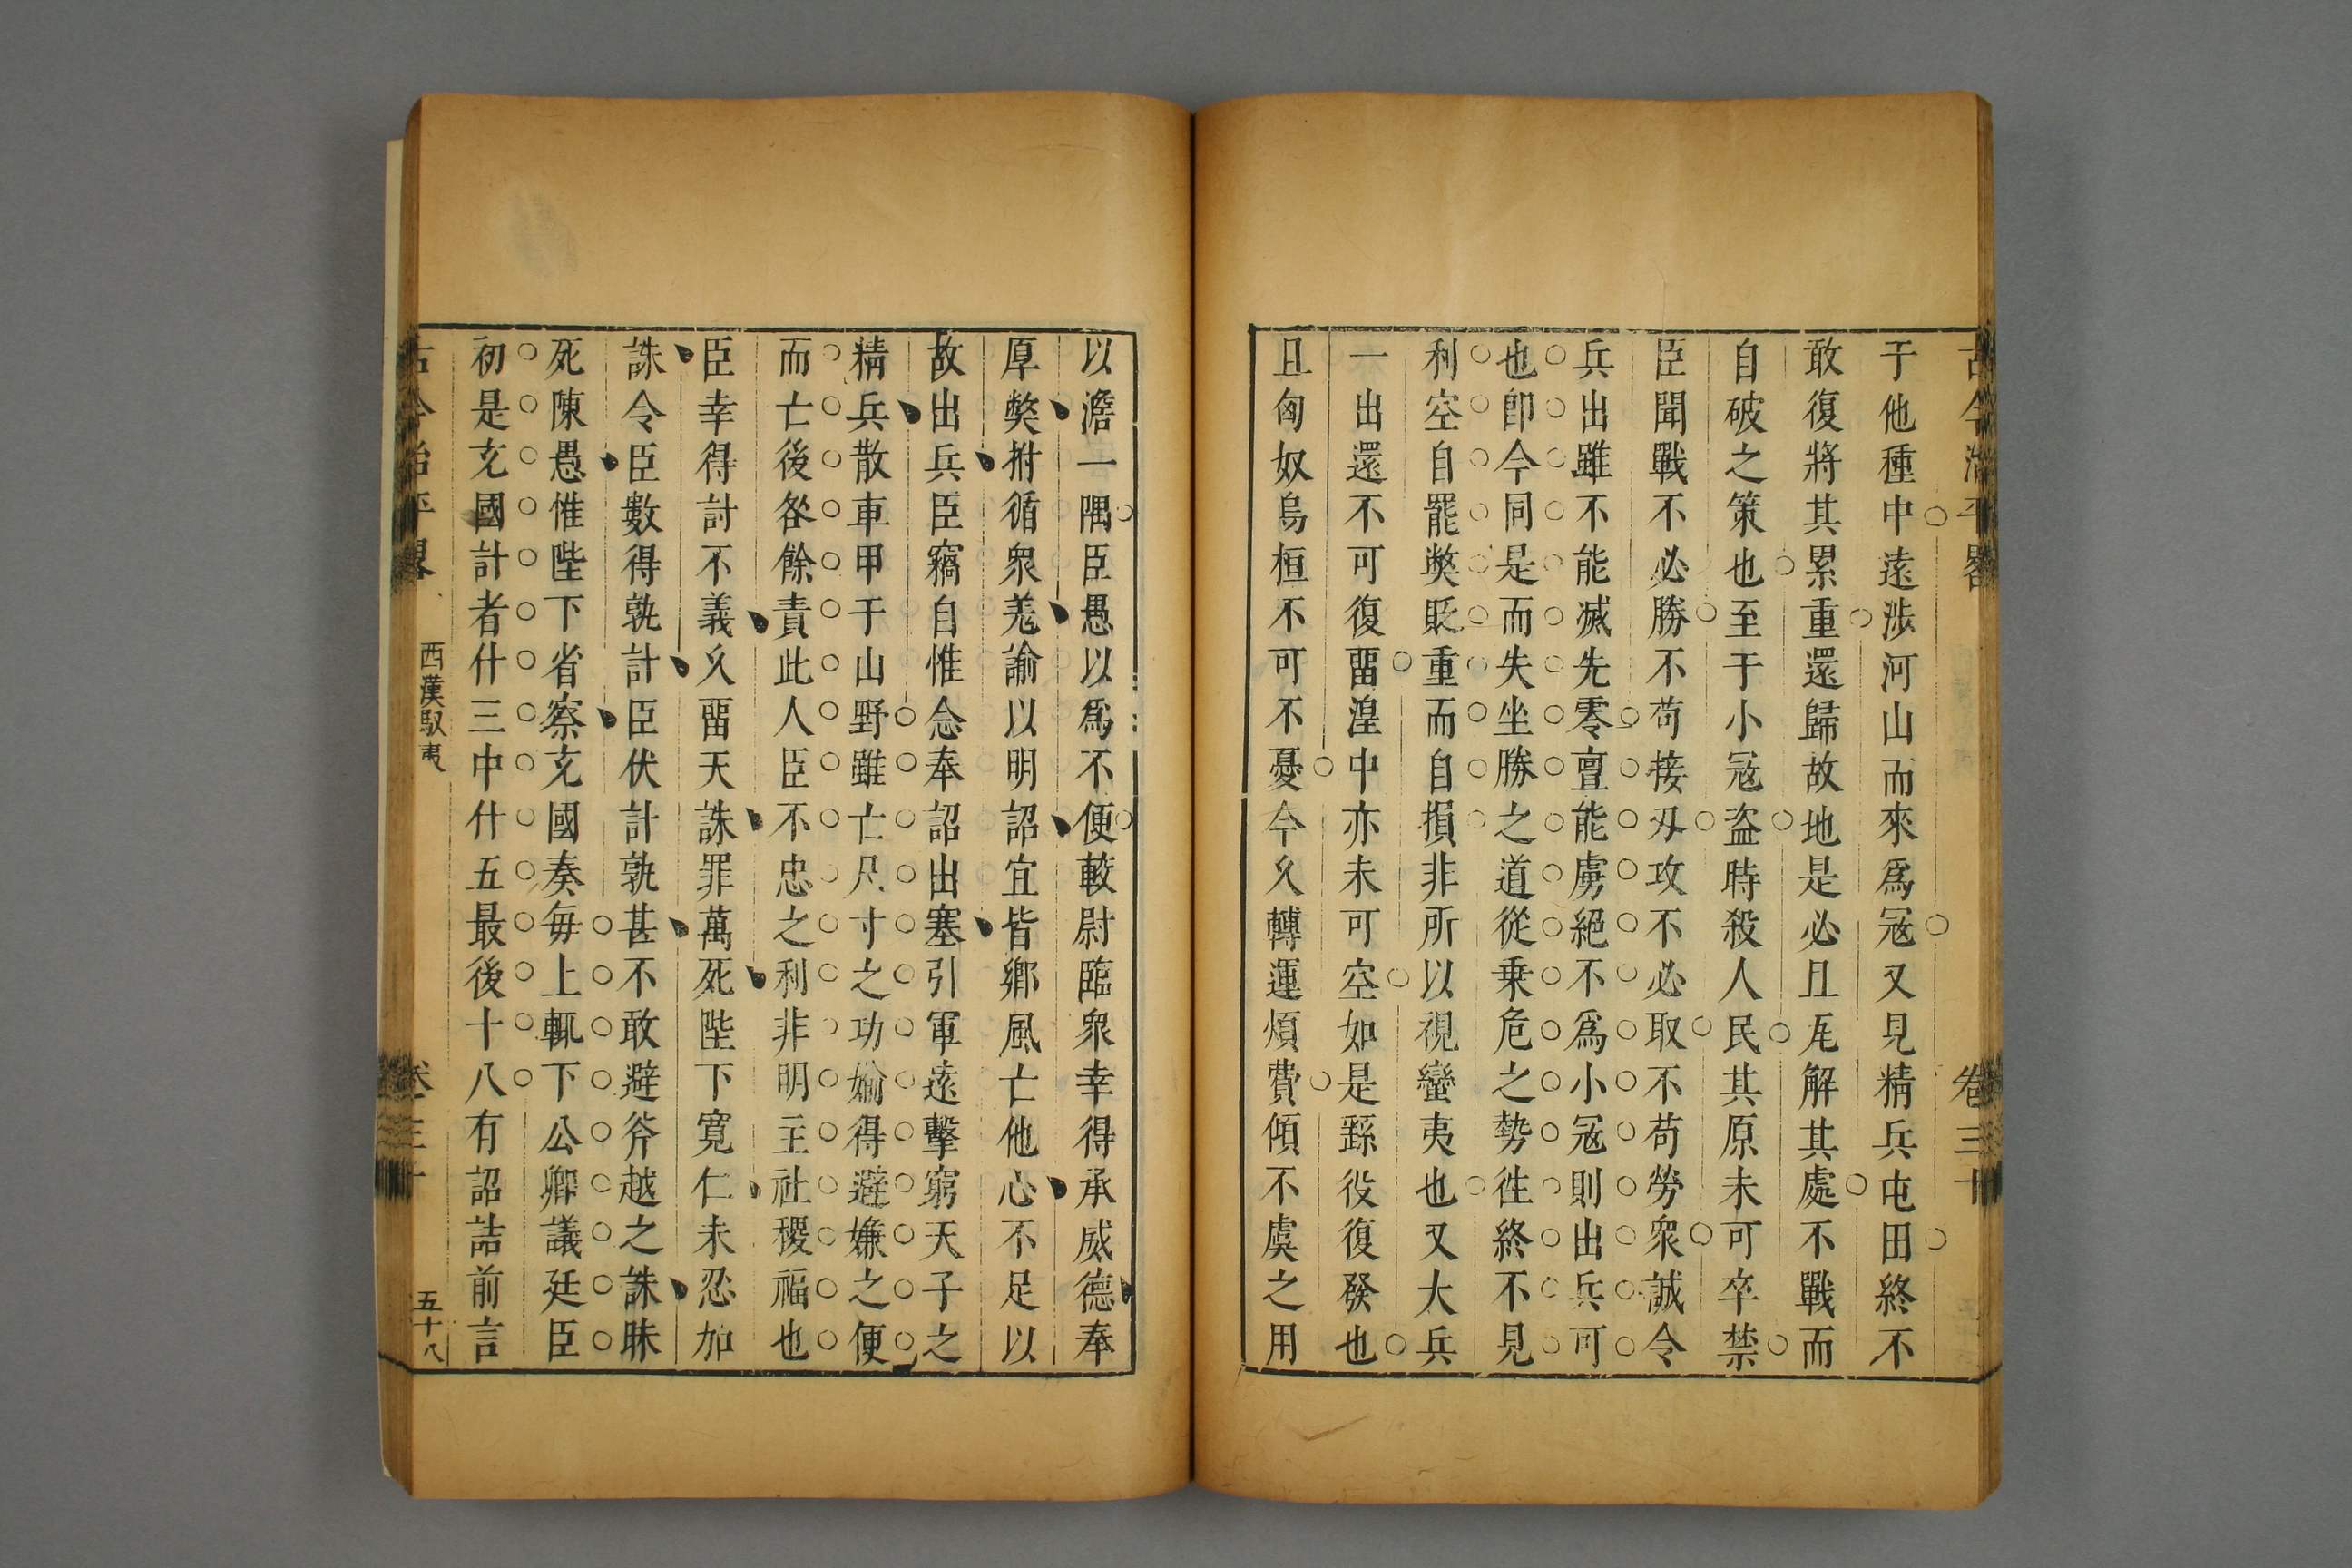 古今治平畧
卷三十
于他種中遠涉河山而來爲冦又見精兵屯田終不
敢復將其累重還歸故地是必且瓦解其處不戰而
自破之策也至于小冦盜時殺人民其原未可卒禁
臣聞戰不必勝不苟接刃攻不必取不苟勞衆誠令
兵出雖不能滅先零亶能虜絕不爲小冦則出兵可
也卽今同是而失坐勝之道從乗危之勢徃終不見
利空自罷獘貶重而自損非所以視蠻夷也又大兵
一出還不可復畱湟中亦未可空如是繇役復發也
且匈奴烏桓不可不憂今乆轉運煩費傾不虞之用
以澹一隅臣愚以爲不便較尉臨衆幸得承威德奉
厚獘拊循衆羗諭以明詔宜皆鄉風亡他心不足以
故出兵臣竊自惟念奉詔出塞引軍遠擊窮天子之
精兵散車甲于山野雖亡尺寸之功婾得避嫌之便
而亡後咎餘責此人臣不忠之利非明主社稷福也
臣幸得討不義乆畱天誅罪萬死陛下寬仁未忍加
誅令臣數得孰計臣伏計孰甚不敢避斧越之誅昧
死陳愚惟陛下省察充國奏每上輒下公卿議廷臣
初是充國計者什三中什五最後十八有詔詰前言
古今治平畧
西漢馭夷
卷三十
五十八